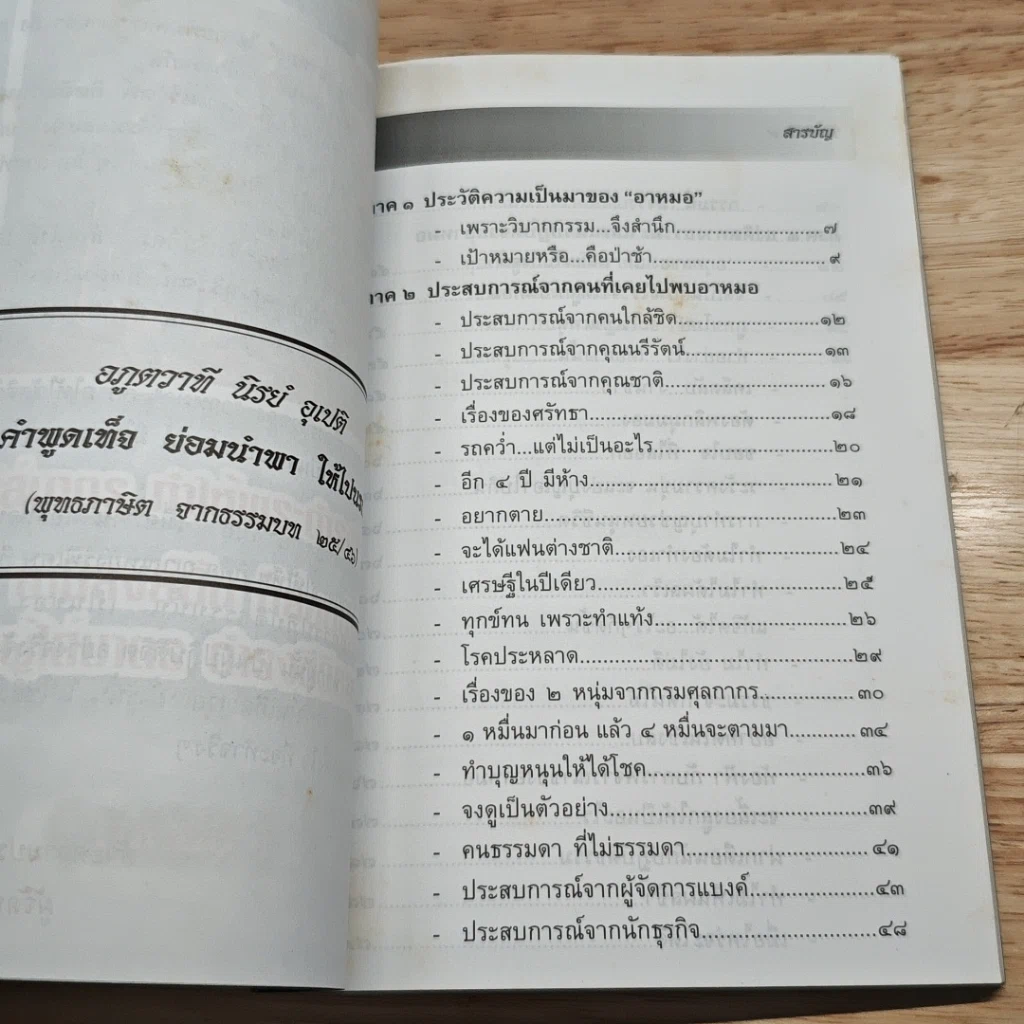 อภูตวาที นิรยํ อุเปติ
คำพูดเท็จ ย่อมนำพา ให้ไป
(พุทธภาษิต จากธรรมบท ๒๕/๔๖)
สารบัญ
ภาค ๑ ประวัติความเป็นมาของ “อาหมอ”
- เพราะวิบากกรรม...จึงสำนึก................................๗
- เป้าหมายหรือ...คือป่าช้า...................................๙
ภาค ๒ ประสบการณ์จากคนที่เคยไปพบอาหมอ
- ประสบการณ์จากคนใกล้ชิด..............................๑๒
- ประสบการณ์จากคุณนรีรัตน์.............................๑๓
- ประสบการณ์จากคุณชาติ.................................๑๖
- เรื่องของศรัทธา...............................................๑๘
- รถคว่ำ...แต่ไม่เป็นอะไร....................................๒๐
- อีก ๔ ปี มีห้าง..................................................๒๑
- อยากตาย.........................................................๒๓
- จะได้แฟนต่างชาติ............................................๒๔
- เศรษฐีในปีเดียว...............................................๒๕
- ทุกข์ทน เพราะทำแท้ง......................................๒๖
- โรคประหลาด...................................................๒๙
- เรื่องของ ๒ หนุ่มจากกรมศุลกากร....................๓๐
- ๑ หมื่นมาก่อน แล้ว ๔ หมื่นจะตามมา................๓๔
- ทำบุญหนุนให้ได้โชค........................................๓๖
- จงดูเป็นตัวอย่าง...............................................๓๙
- คนธรรมดา ที่ไม่ธรรมดา...................................๔๑
- ประสบการณ์จากผู้จัดการแบงค์........................๔๓
- ประสบการณ์จากนักธุรกิจ................................๔๘